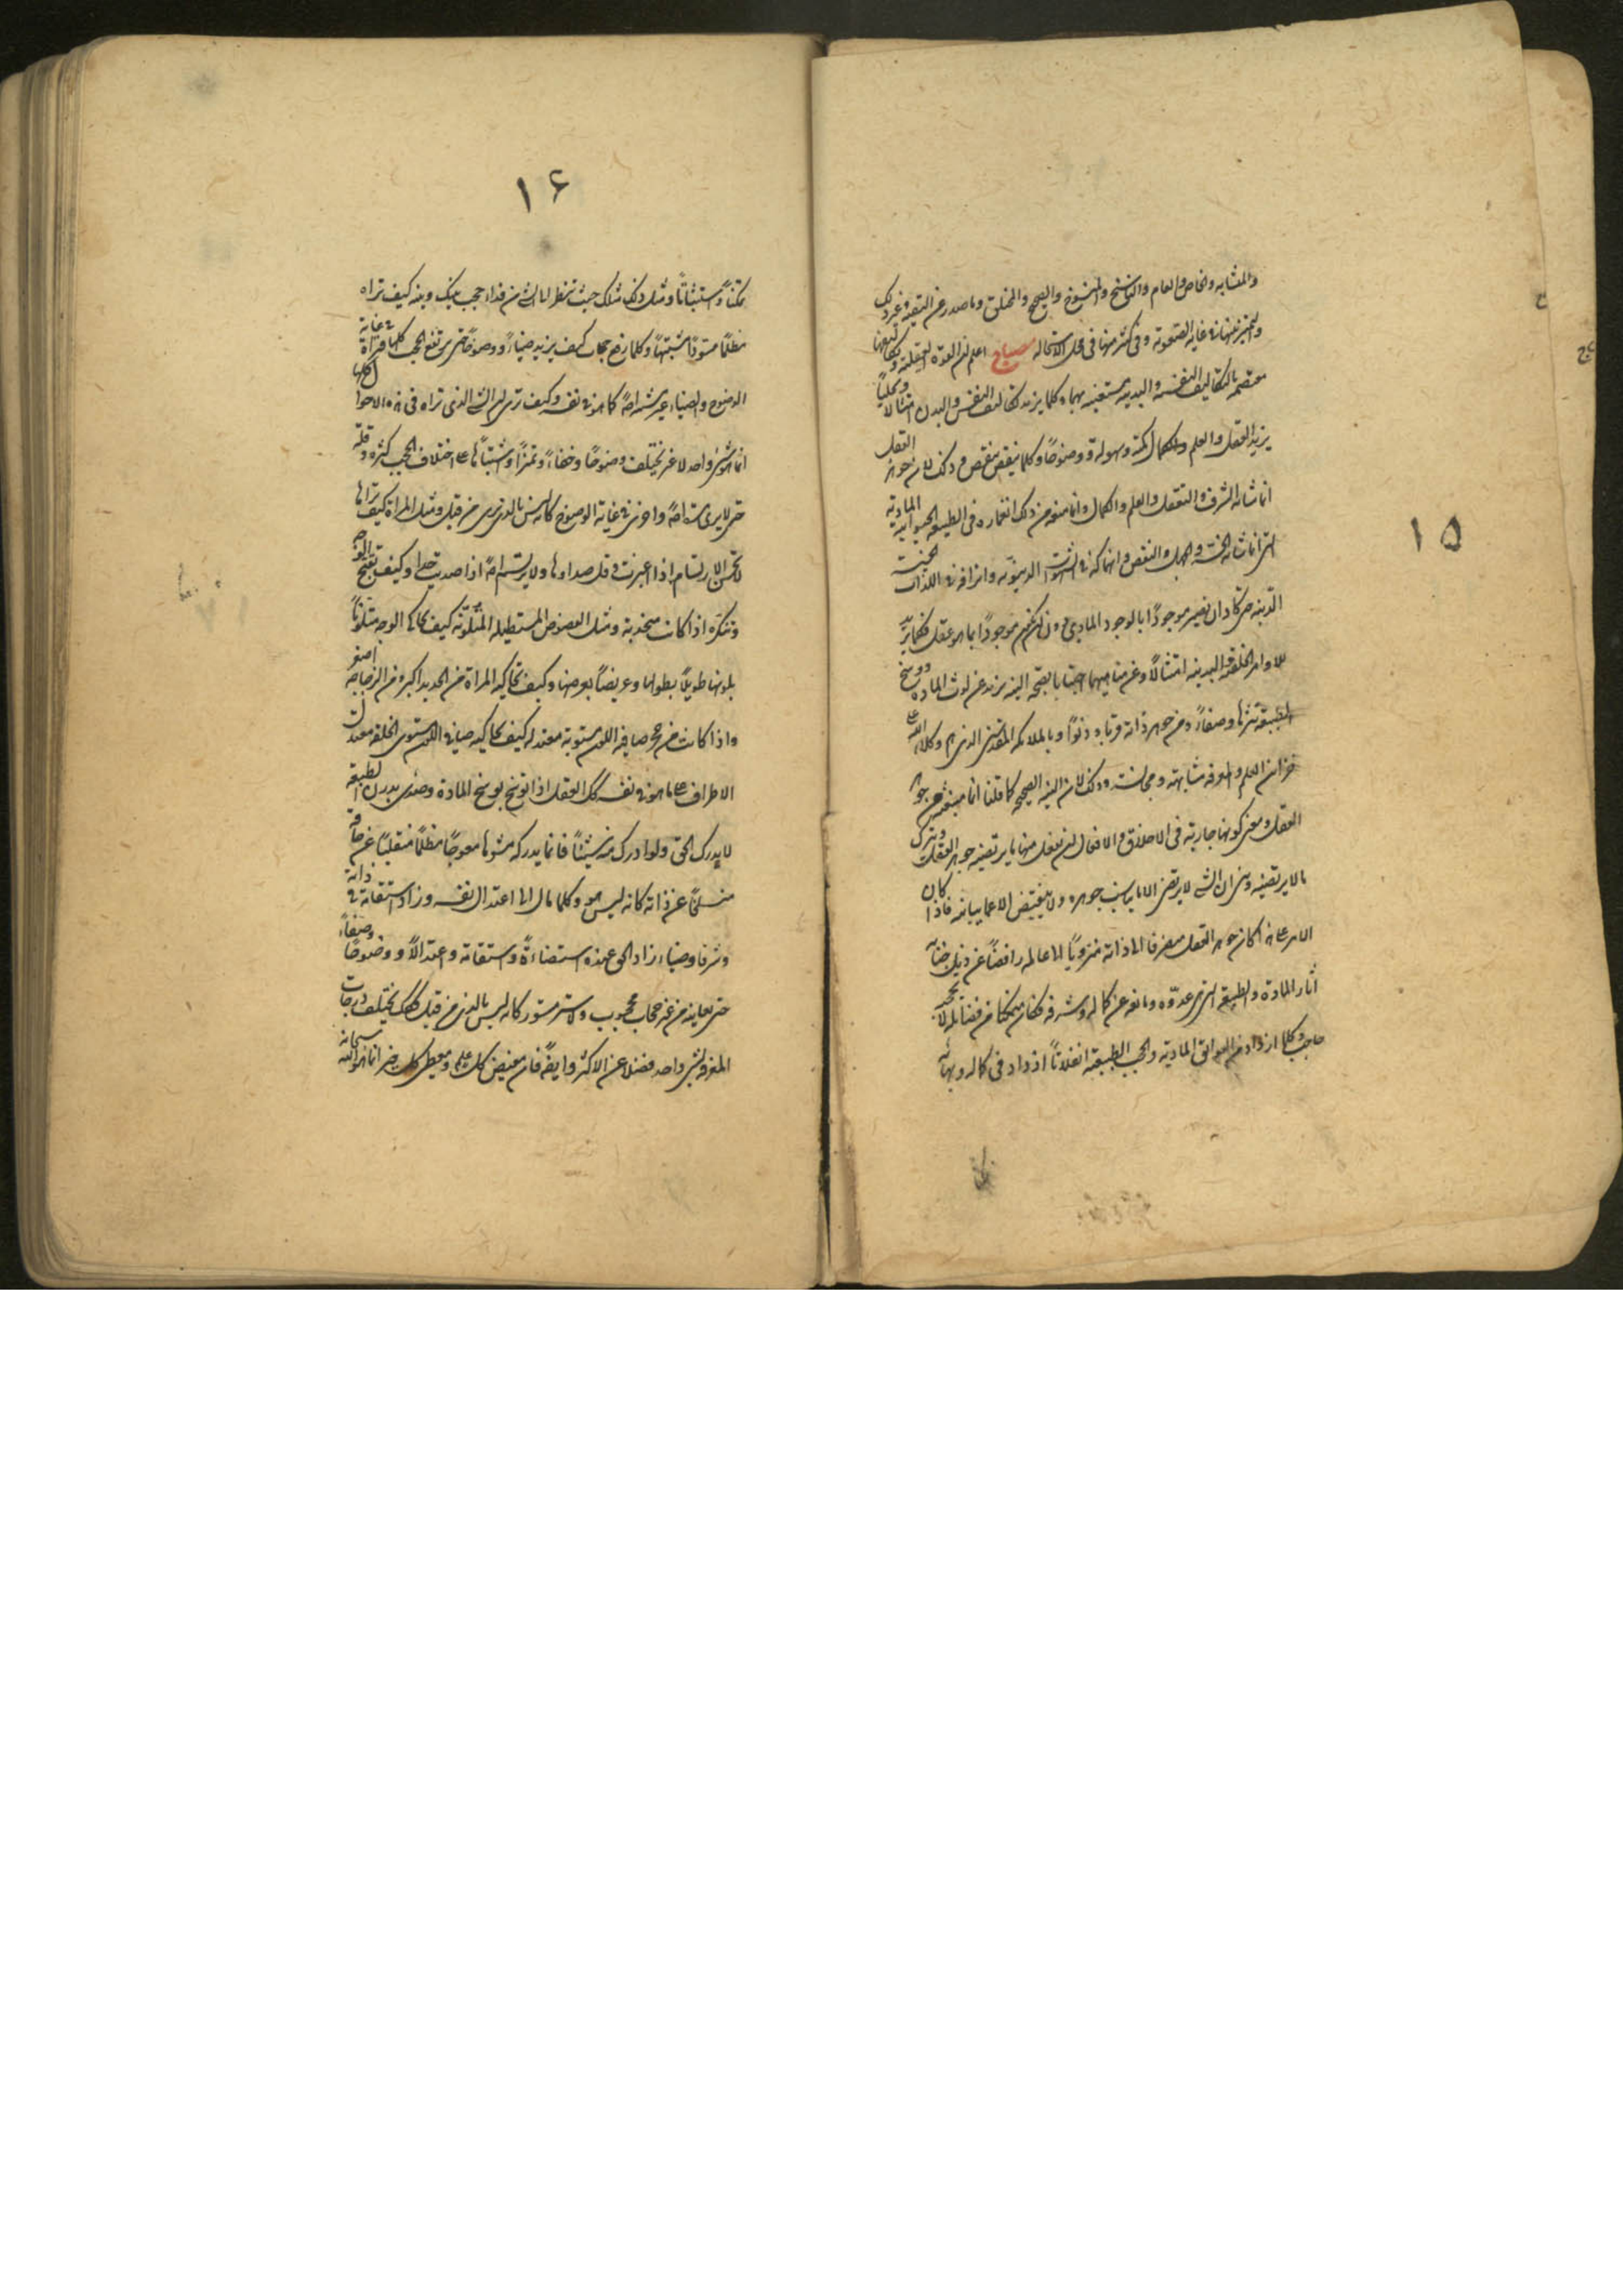 ١٥
والمتشابه والخاص والعام والناسخ والمنسوخ والصحيح والمختلق وما صدر عن التقية وغير ذلك
والتميز بينها في غاية الصعوبة وفي كثير منها في محل الاستحالة مصباح اعلم ان القوة العقلية وتكاليفها
معتضدة بالتكاليف النفسية والبدنية مستعينة بهما وكلما يزيد تكاليف النفس والبدن امتثالا
يزيد العقل والعلم والكمال وسهولة ووضوحا وكلما ينقص ينقص وذلك لان جوهر العقل
انما شانه الشرف والتعقل والعلم والكمال وانما منعه من ذلك انغماره في الطبيعة الحيوانية المادية
التي انما شانها الخسة والجهل والنقص وانهماكه في الشهوات الدنيوية وانزافه في اللذات الخبيثة
الدنية حتى كاد ان يصير موجودا بالوجود المادي وان لم يكن موجودا بما هو عقل فكلما يزيد
للاوامر الخلقية والبدنية امتثالا وعن مناهيهما اجتنابا بصحة النية يزيد عن لوث المادة ووسخ
الطبيعة تنزها وصفاء ومن جوهر ذاته قربا ودنوا وبالملائكة المقدسين الذين هم وكلاء الله على
خزائن العلم والمعرفة مشابهة ومجانسة وذلك لان النية الصحيحة كما قلنا انما ينبعث من جوهر
العقل ومعنى كونها جارية في الاخلاق والافعال ان يفعل منها ما يرتضيه جوهر العقل ويترك
ما لا يرتضيه ومن ان الشيء لا يرتضي الا ما يناسب جوهره ولا ينقبض الا عما يباينه فاذا كان
الامر على هذا كان جوهر العقل منصرفا الى ذاته منزويا الى عالمه رافضا عن ذيل جنابه
آثار المادة والطبيعة التي هي عدوه ومانعه عن كماله وشرفه فكان متمكنا من فضائله لا يحجبه
حاجب وكلما ازداد من العوائق المادية والحجب الطبيعية انفلاتا ازداد في كماله وبهائه
١٦
تمكنا واستثباتا ومثل ذلك مثلك حيث تنظر الى الشيء من وراء حجب بينك وبينه كيف تراه
مظلما مسودا مشتبها وكلما رفع حجاب كيف يزيد ضياء ووضوحا حتى يرتفع الحجب كلها فتراه في غاية
الوضوح والضياء غير مشتبه اصلا كما هو في نفسه وكيف ترى ان الشيء الذي تراه في هذه الاحوال كلها
انما هو شيء واحد لا غير يختلف وضوحا وخفاء وتميزا واشتباها على اختلاف الحجب كثرة وقلة
حتى لا يرى شيئا اصلا واخرى في غاية الوضوح كانه ليس بالذي يرى من قبل ومثل المرآة كيف تراها
لا تحسن الارتسام اذا اغبرت وقل صداوها ولا يرتسم اصلا اذا صديت جدا وكيف تقبح الوجه
وتنكره اذا كانت محدبة ومثل الفصوص المستطيلة المتلونة كيف تحاكي الوجه متلونا
بلونها طويلا بطولها وعريضا بعرضها وكيف تحاكيه المرآة من الحديد اكبر ومن الزجاجة اصغر
واذا كانت من حجر صافية اللون مستوية معتدلة كيف تحاكيه صافي اللون مستوي الخلقة معتدل
الاطراف على ما هو في نفسه كك العقل اذا توسخ بوسخ المادة وصدي بدرن الطبيعة
لا يدرك الحق ولو ادرك منه شيئا فانما يدركه مشوها معوجا مظلما منقلبا عن حاقه
منسلخا عن ذاته كانه ليس هو وكلما مال الى اعتدال نفسه وزاد استقامة في ذاته
وشرفا وضياء زاد الحق عنده استضاءة واستقامة واعتدالا ووضوحا وصفاء
حتى يعاينه من غير حجاب محجوب ولا ستر مستور كانه ليس بالذي من قبل كك يختلف درجات
المعرفة لشيء واحد فضلا عن الاكثر وايضا فان مفيض كل علم ومعطي كل خير انما هو الله سبحانه